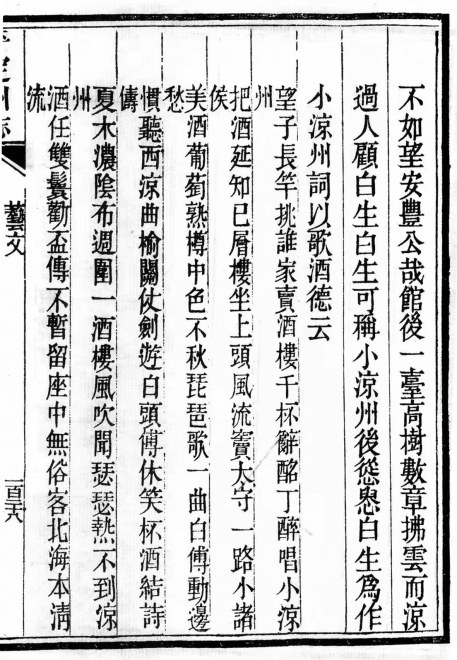 不如望安豐公哉館後一臺高樹數章拂雲而涼
過人顧白生白生可稱小涼州後慫恿白生爲作
小涼州詞以歌酒德云
望子長竿挑誰家賣酒樓千杯辭酩丁醉唱小涼
州
把酒延知己層樓坐上頭風流竇大守一路小諸
侯
美酒葡萄熟樽中色不秋琵琶歌一曲白傅動邊
愁
慣聽西涼曲榆關仗劍遊白頭傅休笑杯酒結詩
儔
夏木濃陰布週圍一酒樓風吹聞瑟瑟熱不到涼
州
酒任雙鬟勸盃傳不暫留座中無俗客北海本清
流
定州志
藝文